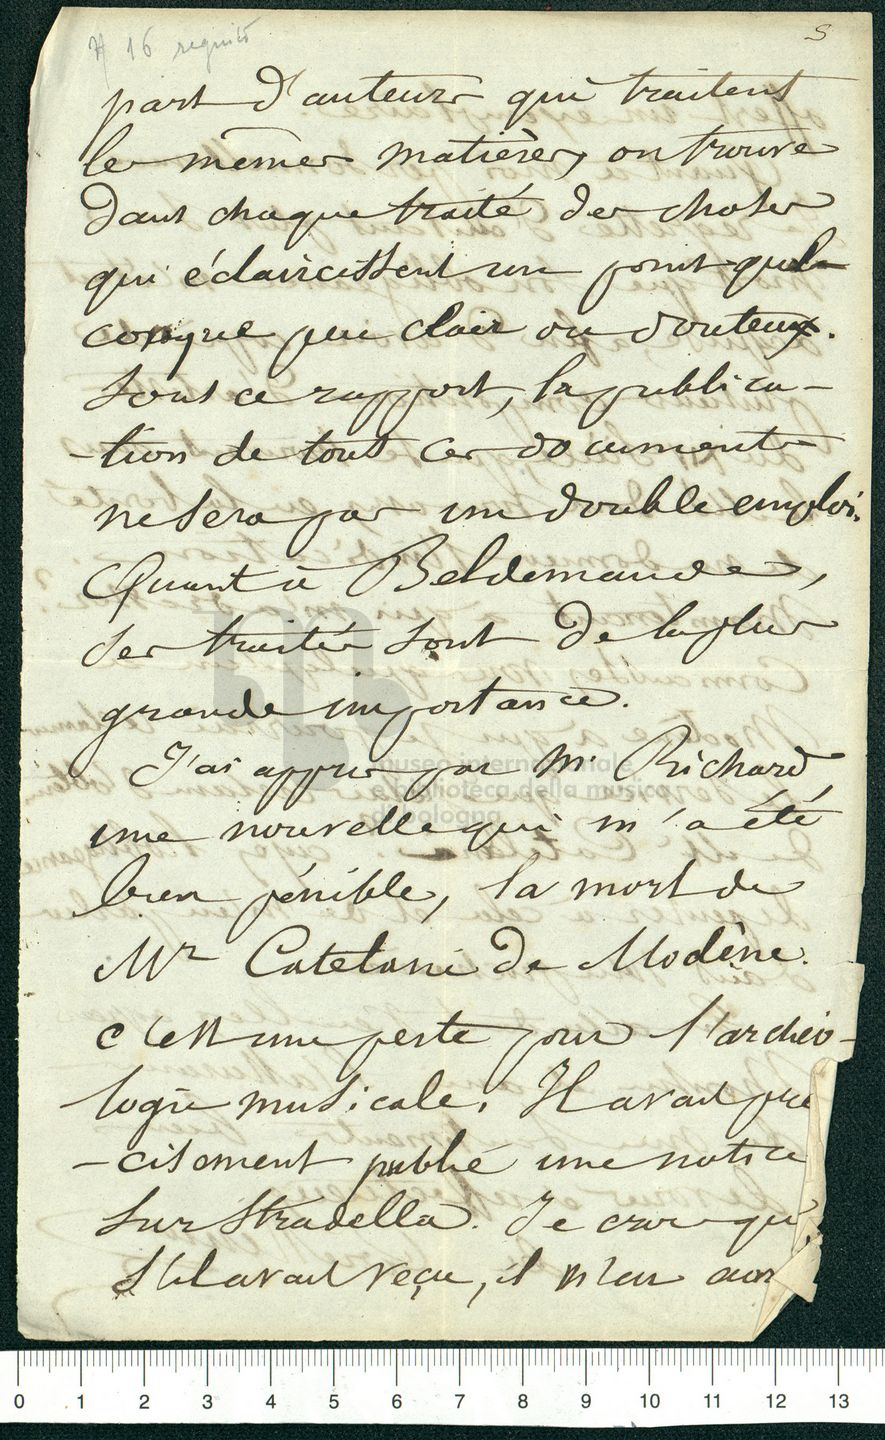 S
part d'auteurs qui traitent
les mêmes matières, on trouve
dans chaque traité des choses
qui éclaircissent un point quel-
conque peu clair ou douteux.
Sous ce rapport, la publica-
-tion de tous ces documents
ne sera pas un double emploi.
Quant à Beldemande,
ses traités sont de la plus
grande importance.
J'ai appris par Mr Richard
une nouvelle qui m'a été
bien pénible, la mort de
Mr Catelani de Modène.
c'est une perte pour l'archéo-
logie musicale. Il avait pré
-cisement publié une notice
sur Stradella. Je crois que
s'il avait veçu, il m'eu
museo internazionale
e biblioteca della musica
di bologna
0 1 2 3 4 5 6 7 8 9 10 11 12 13